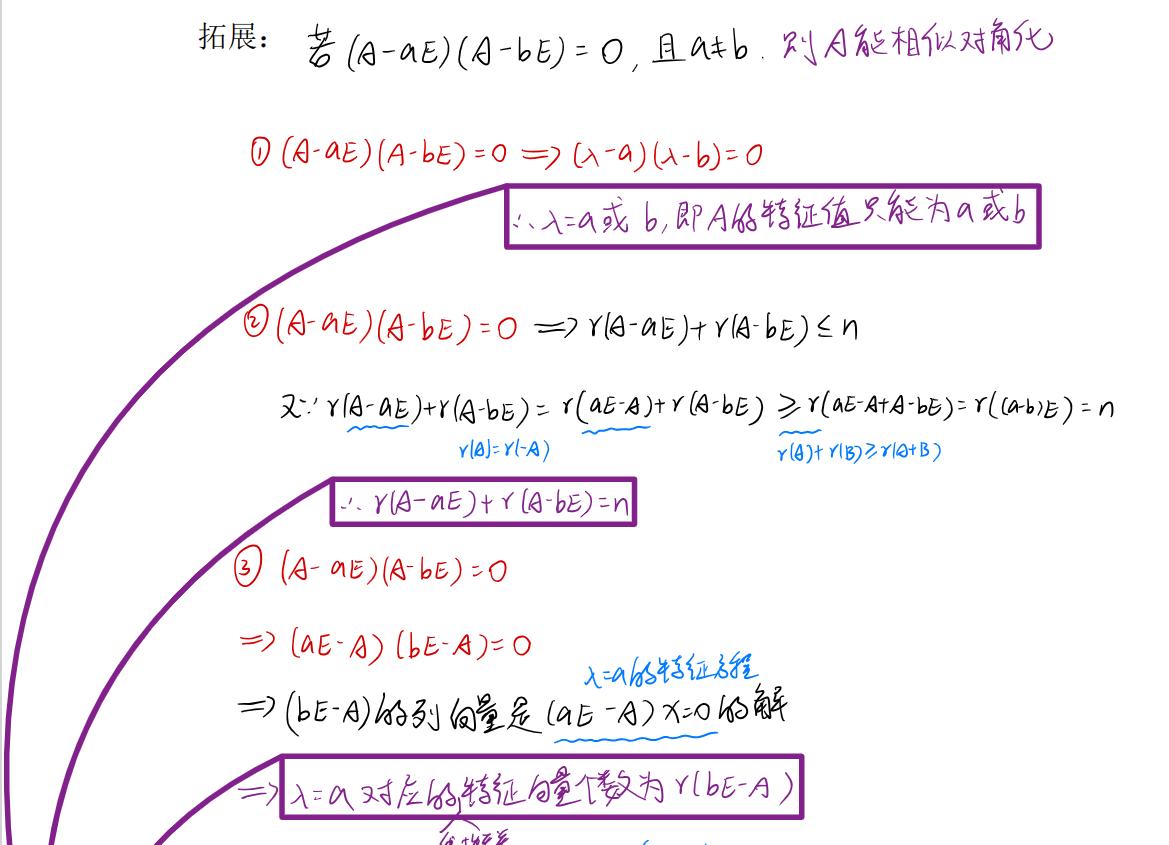 拓展： 若(A-aE)(A-bE)=0,且a≠b. 则A能相似对角化
① (A-aE)(A-bE)=0 ⟹ (λ-a)(λ-b)=0
∴λ=a或b,即A的特征值只能为a或b
② (A-aE)(A-bE)=0 ⟹ r(A-aE)+r(A-bE)≤n
又∵ r(A-aE)+r(A-bE)= r(aE-A)+r(A-bE) ≥ r(aE-A+A-bE)=r((a-b)E)=n
r(A)=r(-A) r(A)+r(B)≥r(A+B)
∴ r(A-aE)+r(A-bE)=n
③ (A-aE)(A-bE)=0
⟹ (aE-A)(bE-A)=0
λ=a的特征方程
⟹ (bE-A)的列向量是(aE-A)x=0的解
⟹ λ=a对应的特征向量个数为r(bE-A)